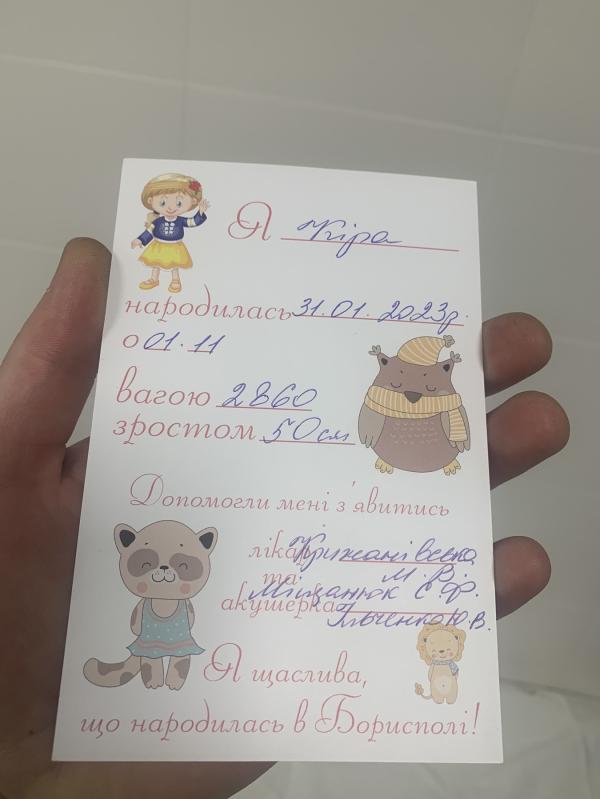 Я Кіра
народилась 31.01.2023р.
о 01.11
вагою 2860
зростом 50см
Допомогли мені з'явитись
лікар Крижанівська
та М. В.
Міщанюк Є. Ф.
акушерка Ільченко Ю. В.
Я щаслива,
що народилась в Борисполі!